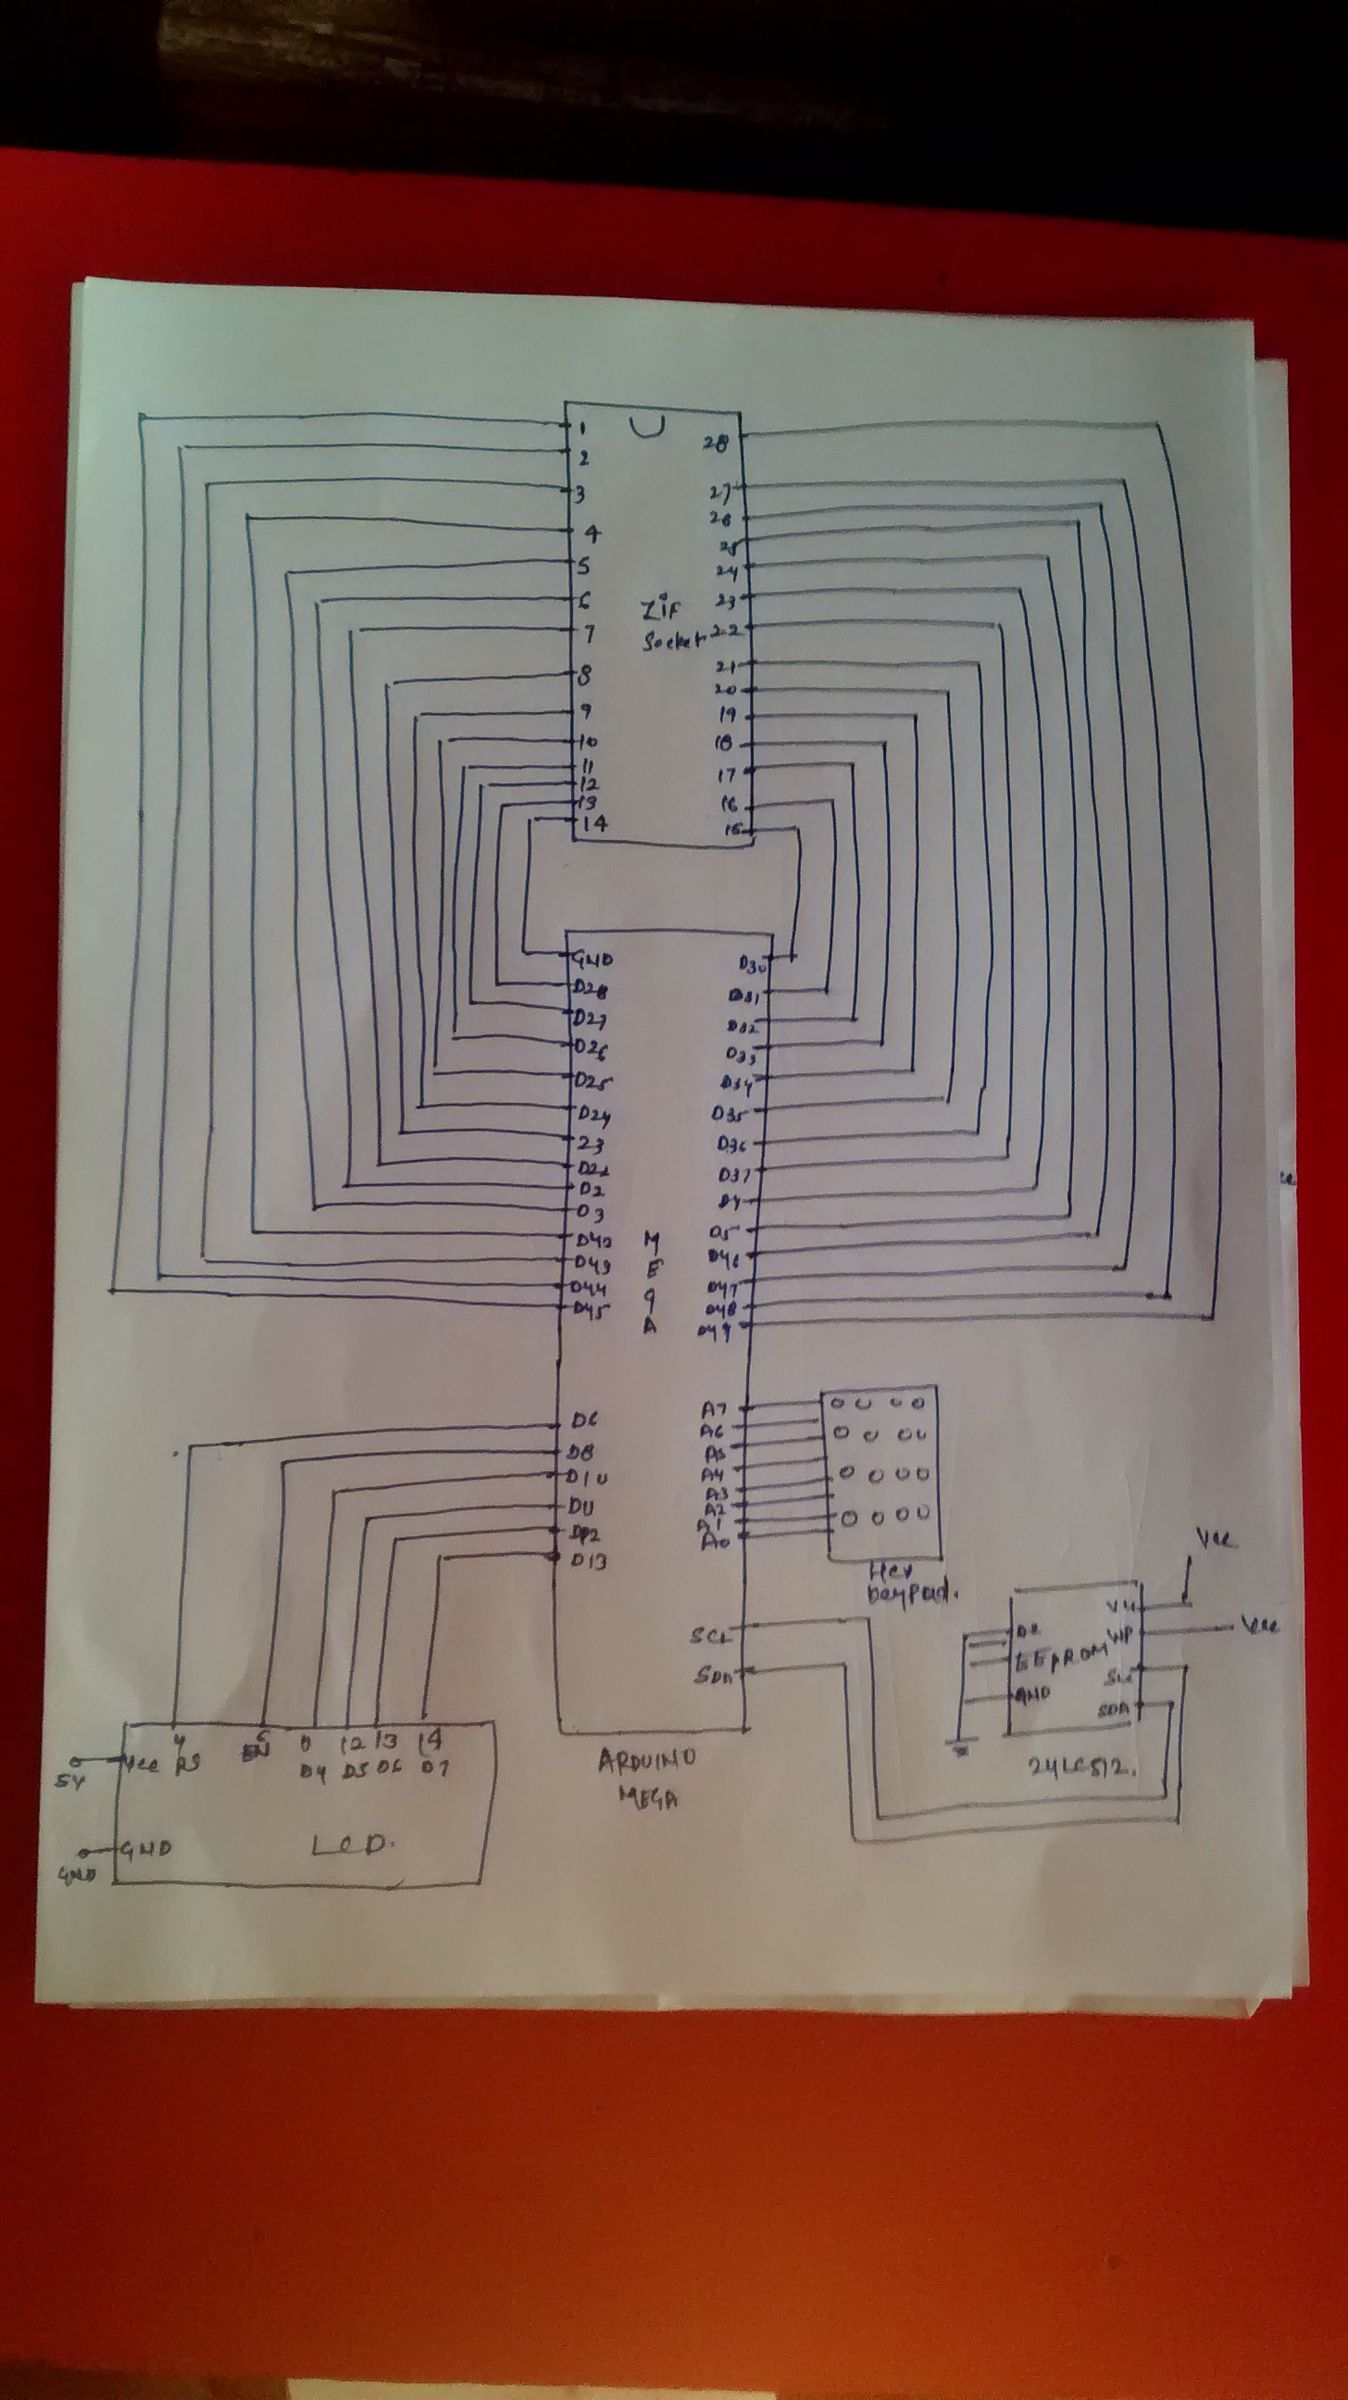 1
2
3
4
5
6
7
8
9
10
11
12
13
14
28
27
26
25
24
23
22
21
20
19
18
17
16
15
ZiF
Socket
GND
D28
D27
D26
D25
D24
23
D22
D2
D3
D42
D43
D44
D45
D30
D31
D32
D33
D34
D35
D36
D37
D4
D5
D46
D47
D48
D49
M
E
G
A
D6
D8
D10
D12
D13
A7
A6
A5
A4
A3
A2
A1
A0
SCL
SDA
ARDUINO
MEGA
Hex
keypad.
Vcc
Vcc
WP
EEPROM
GND
SCL
SDA
24LC512.
4
EN
12
13
14
Vcc
RS
D4
D5
D6
D7
5V
GND
GND
LCD.